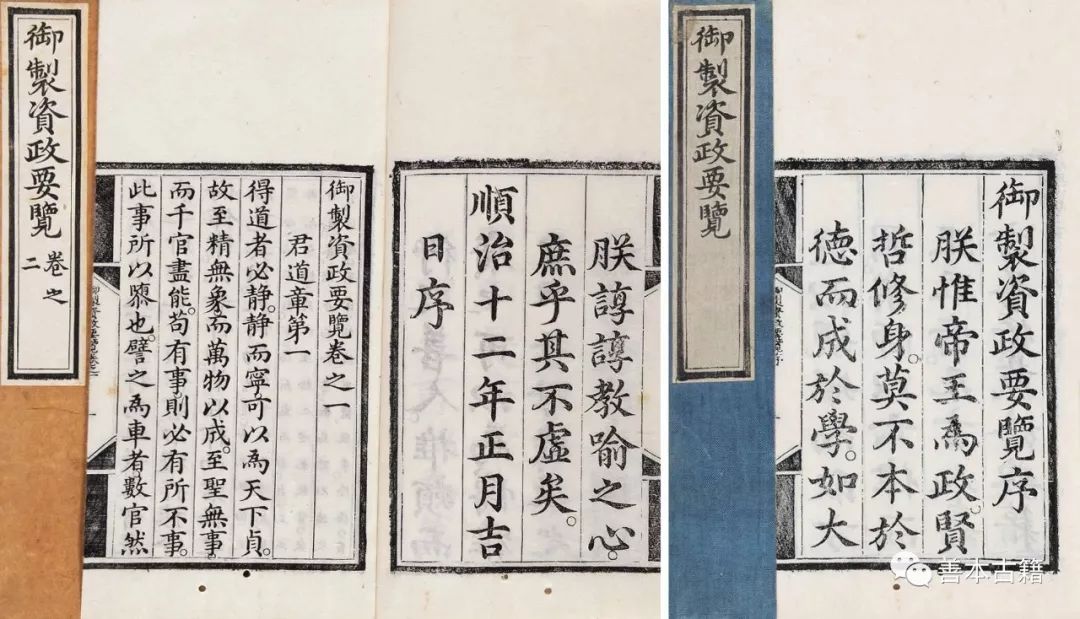 御製資政要覽序
朕惟帝王為政。賢
哲修身。莫不本於
德而成於學。如大
御製資政要覽
朕諄諄教喻之心。
庶乎其不虛矣。
順治十二年正月吉
日序
御製資政要覽卷之一
君道章第一
得道者必静。静而寧。可以為天下貞。
故至精無象。而萬物以成。至聖無事。
而千官盡能。苟有事。則必有所不事。
此事所以隳也。譬之為車者。數官然
御製資政要覽 卷之二
善本古籍